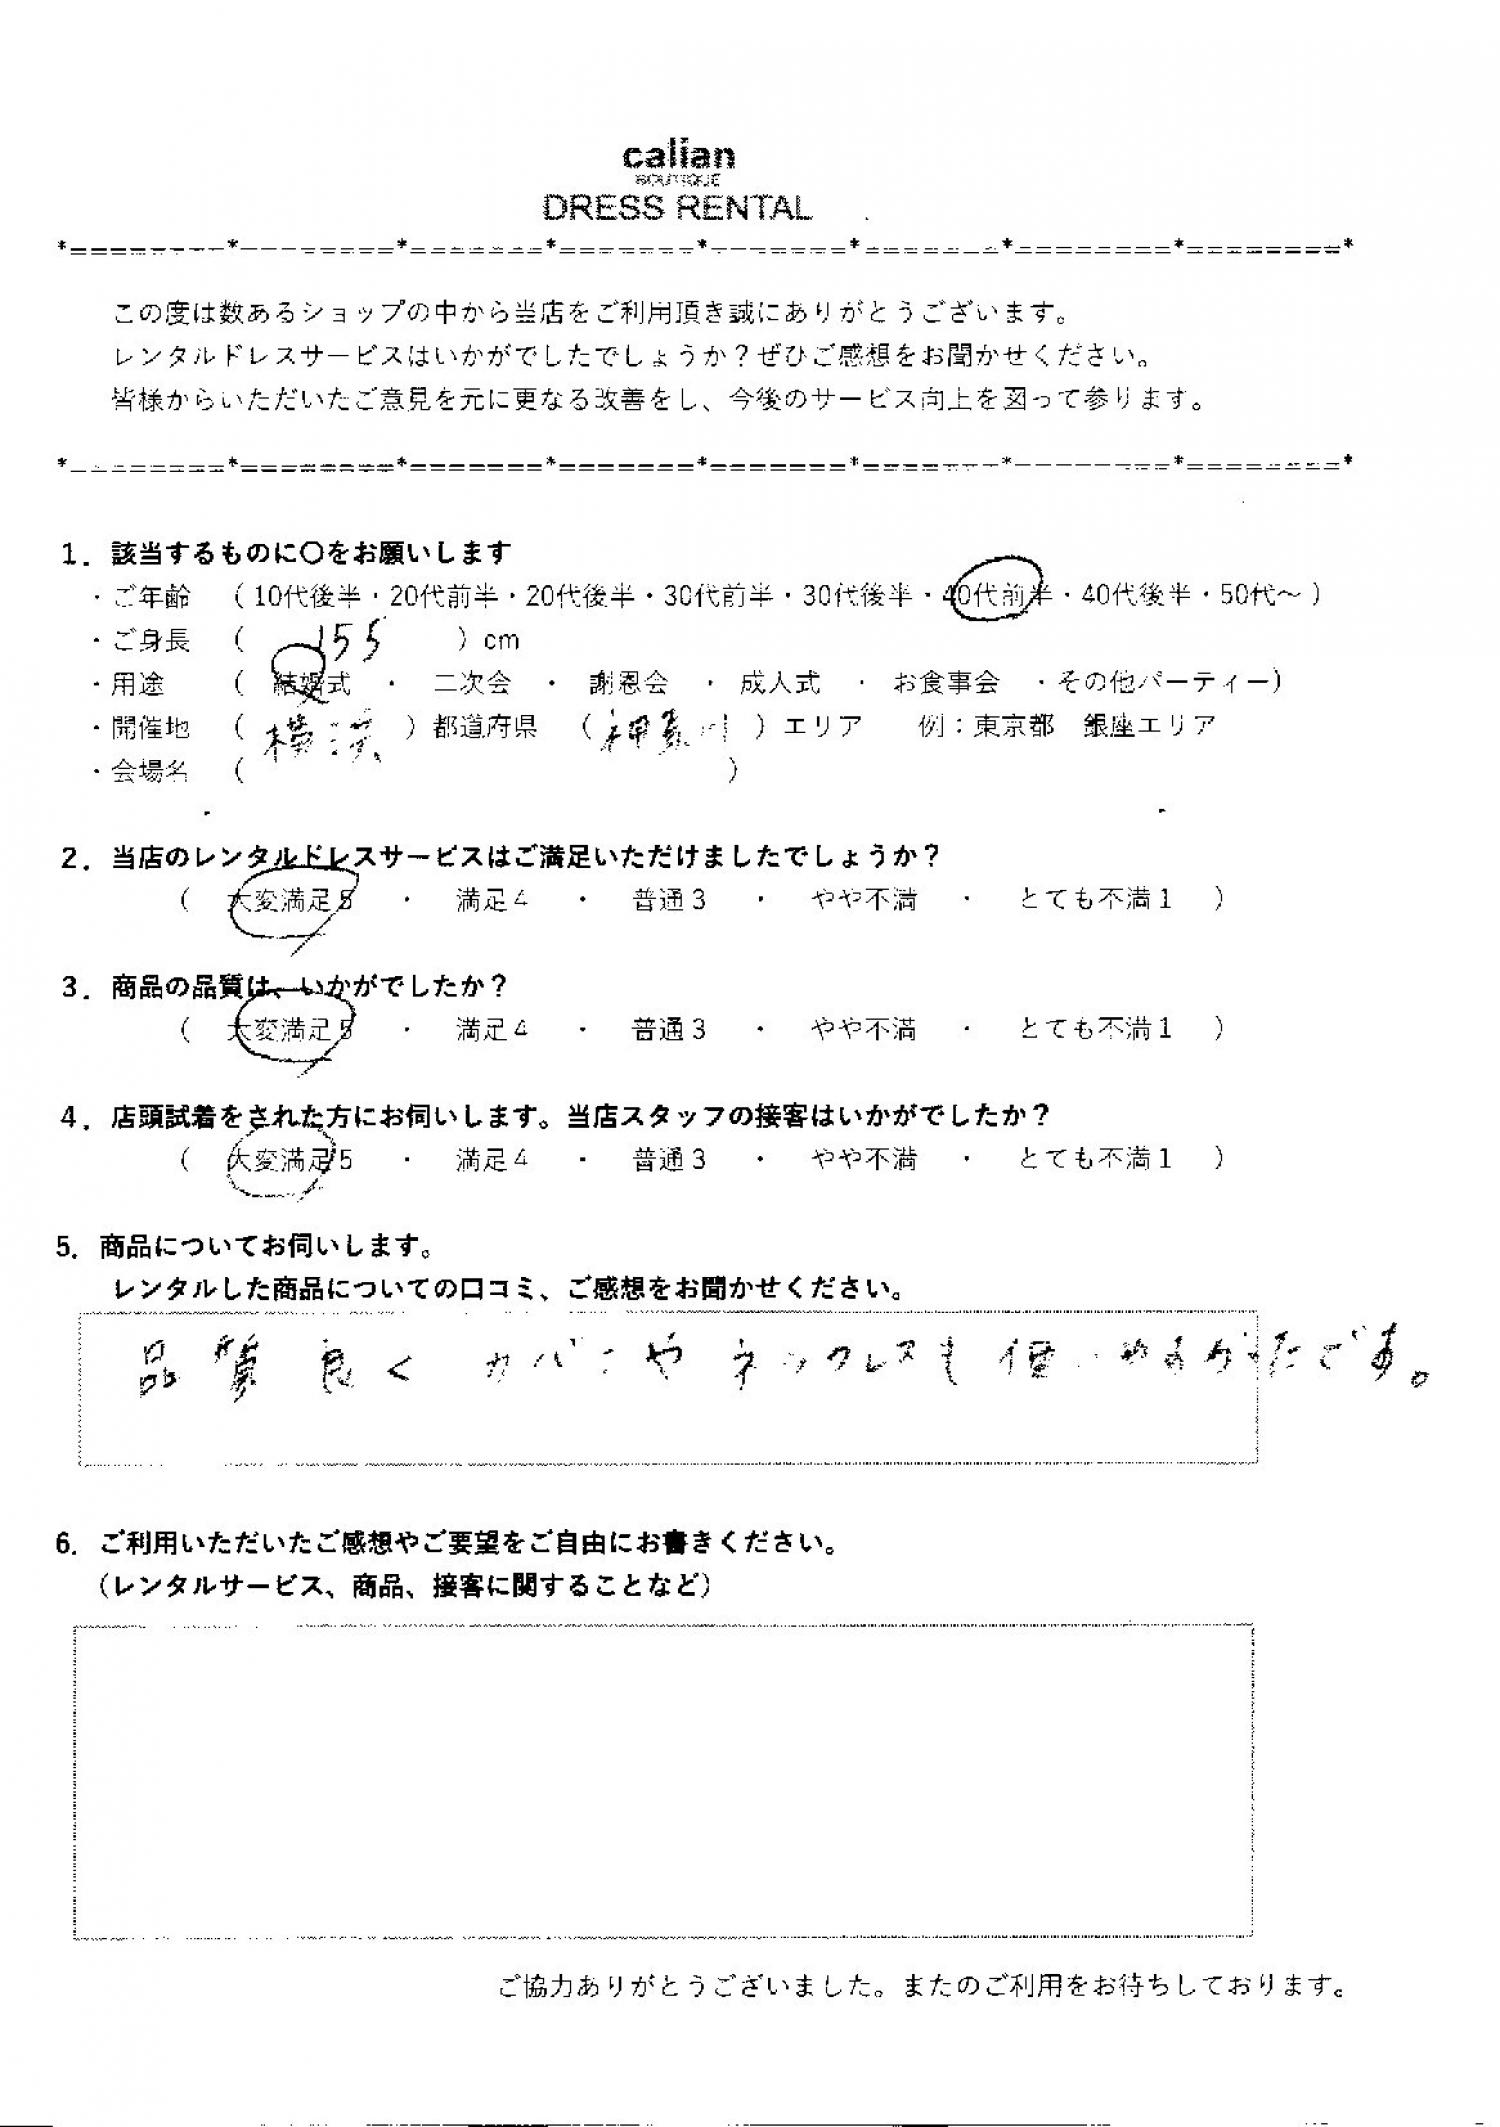 calian
BOUTIQUE
DRESS RENTAL
*========*========*=======*=======*=======*=======*========*========*
この度は数あるショップの中から当店をご利用頂き誠にありがとうございます。
レンタルドレスサービスはいかがでしたでしょうか？ぜひご感想をお聞かせください。
皆様からいただいたご意見を元に更なる改善をし、今後のサービス向上を図って参ります。
*========*========*=======*=======*=======*=======*========*========*
1．該当するものに〇をお願いします
・ご年齢 （ 10代後半・20代前半・20代後半・30代前半・30代後半・40代前半・40代後半・50代～ ）
・ご身長 （ 155 ）cm
・用途 （ 結婚式 ・ 二次会 ・ 謝恩会 ・ 成人式 ・ お食事会 ・その他パーティー）
・開催地 （ 横浜 ）都道府県 （ 神奈川 ）エリア 例：東京都 銀座エリア
・会場名 （ ）
2．当店のレンタルドレスサービスはご満足いただけましたでしょうか？
（ 大変満足5 ・ 満足4 ・ 普通3 ・ やや不満 ・ とても不満1 ）
3．商品の品質は、いかがでしたか？
（ 大変満足5 ・ 満足4 ・ 普通3 ・ やや不満 ・ とても不満1 ）
4．店頭試着をされた方にお伺いします。当店スタッフの接客はいかがでしたか？
（ 大変満足5 ・ 満足4 ・ 普通3 ・ やや不満 ・ とても不満1 ）
5．商品についてお伺いします。
レンタルした商品についての口コミ、ご感想をお聞かせください。
品質良く カバンや ネックレスも です。
6．ご利用いただいたご感想やご要望をご自由にお書きください。
（レンタルサービス、商品、接客に関することなど）
ご協力ありがとうございました。またのご利用をお待ちしております。